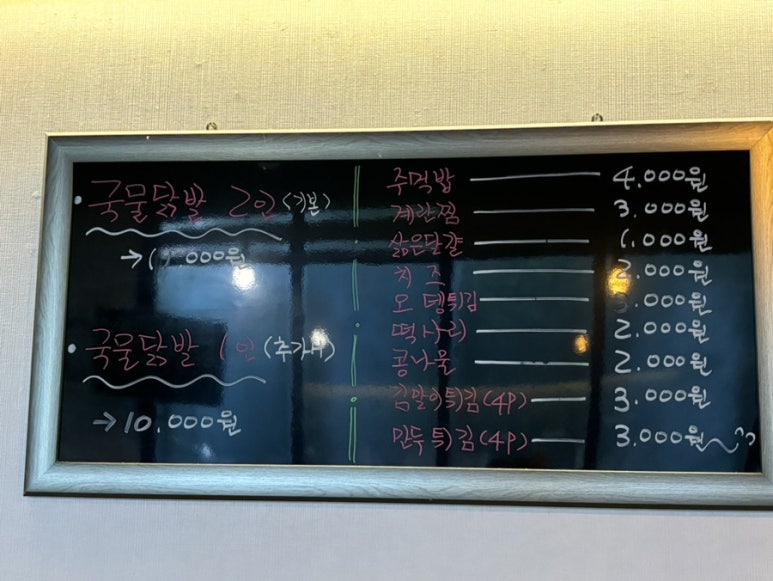 국물닭발 2인 (기본)
국물닭발 1인 (추가시)
→10.000원
주먹밥 4.000원
계란찜 3.000원
삶은달걀 1.000원
치즈 2.000원
오뎅튀김
떡사리 2.000원
콩나물 2.000원
김말이튀김(4P) 3.000원
만두튀김(4P) 3.000원